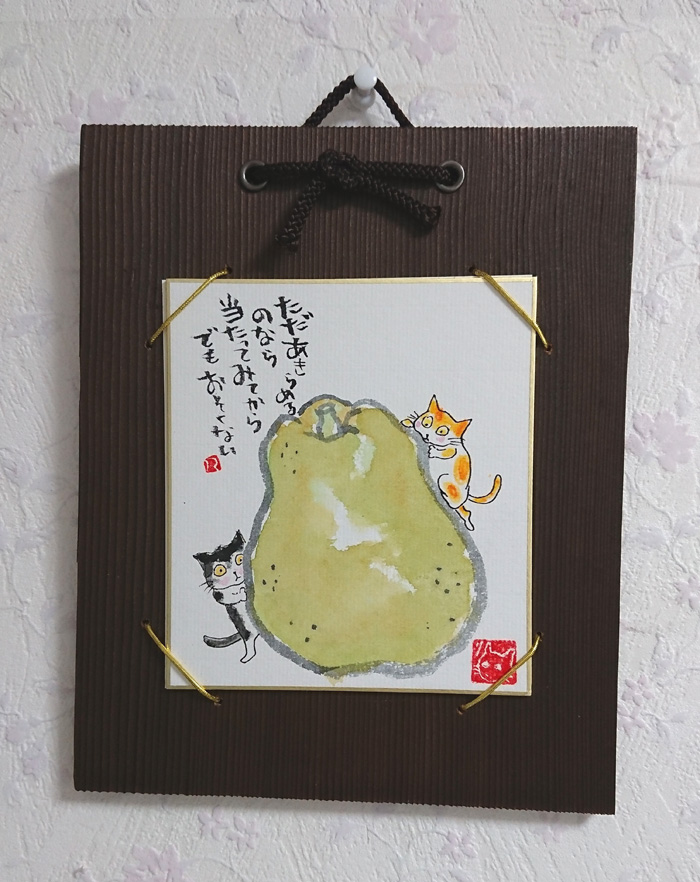 ただあきらめる
のなら
当たってみてから
でもおそくない